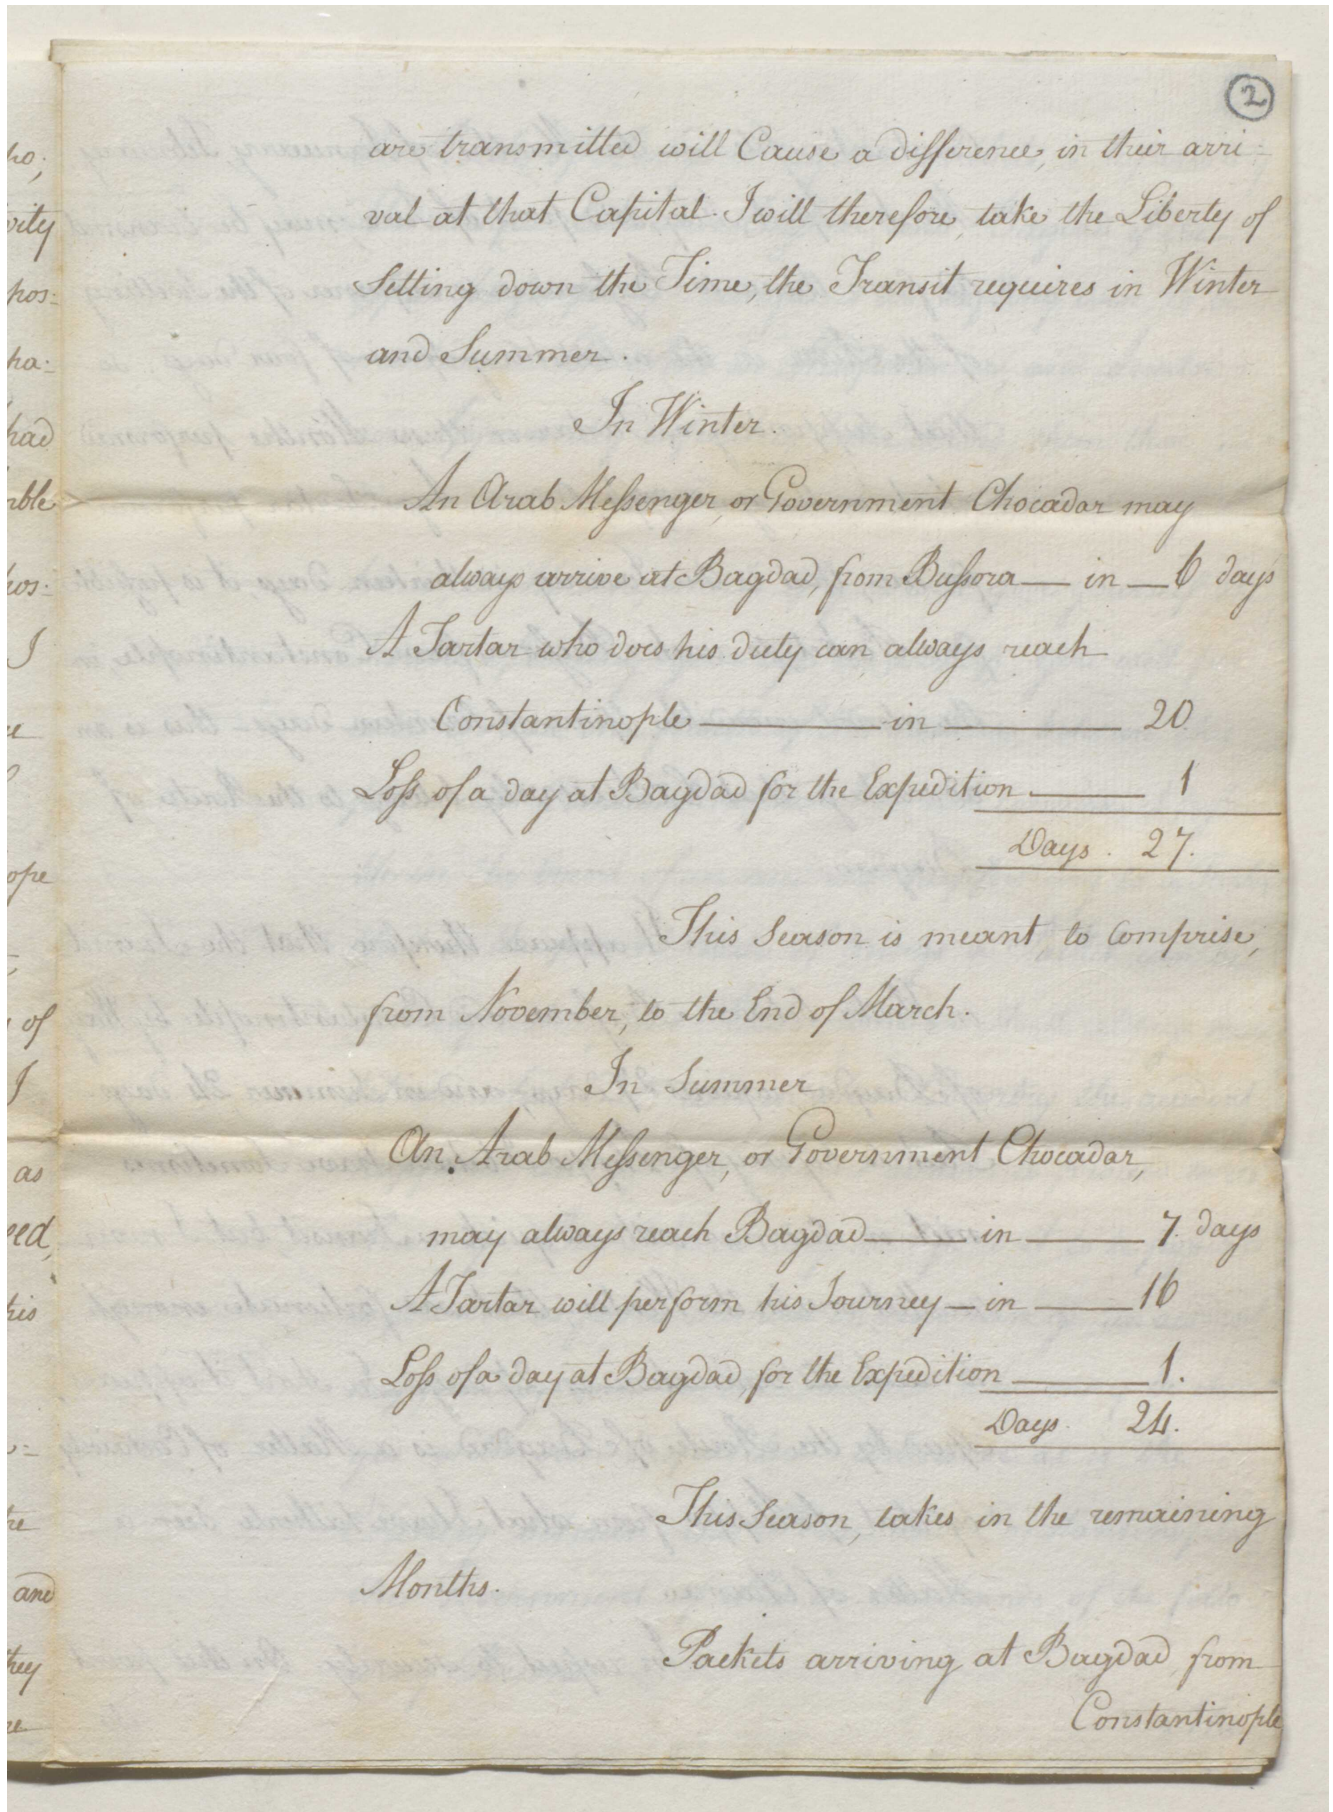 2
are transmitted will Cause a difference, in their arri=
val at that Capital. I will therefore, take the Liberty of
Setting down the Time, the Transit requires in Winter
and Summer.
In Winter.
An Arab Messenger, or Government Chocadar may
always arrive at Bagdad, from Bussora — in — 6 days
A Tartar who does his duty can always reach
Constantinople — in — 20
Loss of a day at Bagdad for the Expedition — 1
Days. 27.
This Season is meant, to Comprise,
from November, to the End of March.
In Summer
An Arab Messenger, or Government Chocadar,
may always reach Bagdad — in — 7. days
A Tartar will perform his Journey — in — 16
Loss of a day at Bagdad, for the Expedition — 1.
Days. 24.
This Season, takes in the remaining
Months.
Packets arriving at Bagdad, from
Constantinople
ho;
pos=
ha=
had
hos:
I
ope
of
I
as
his
he
and
they